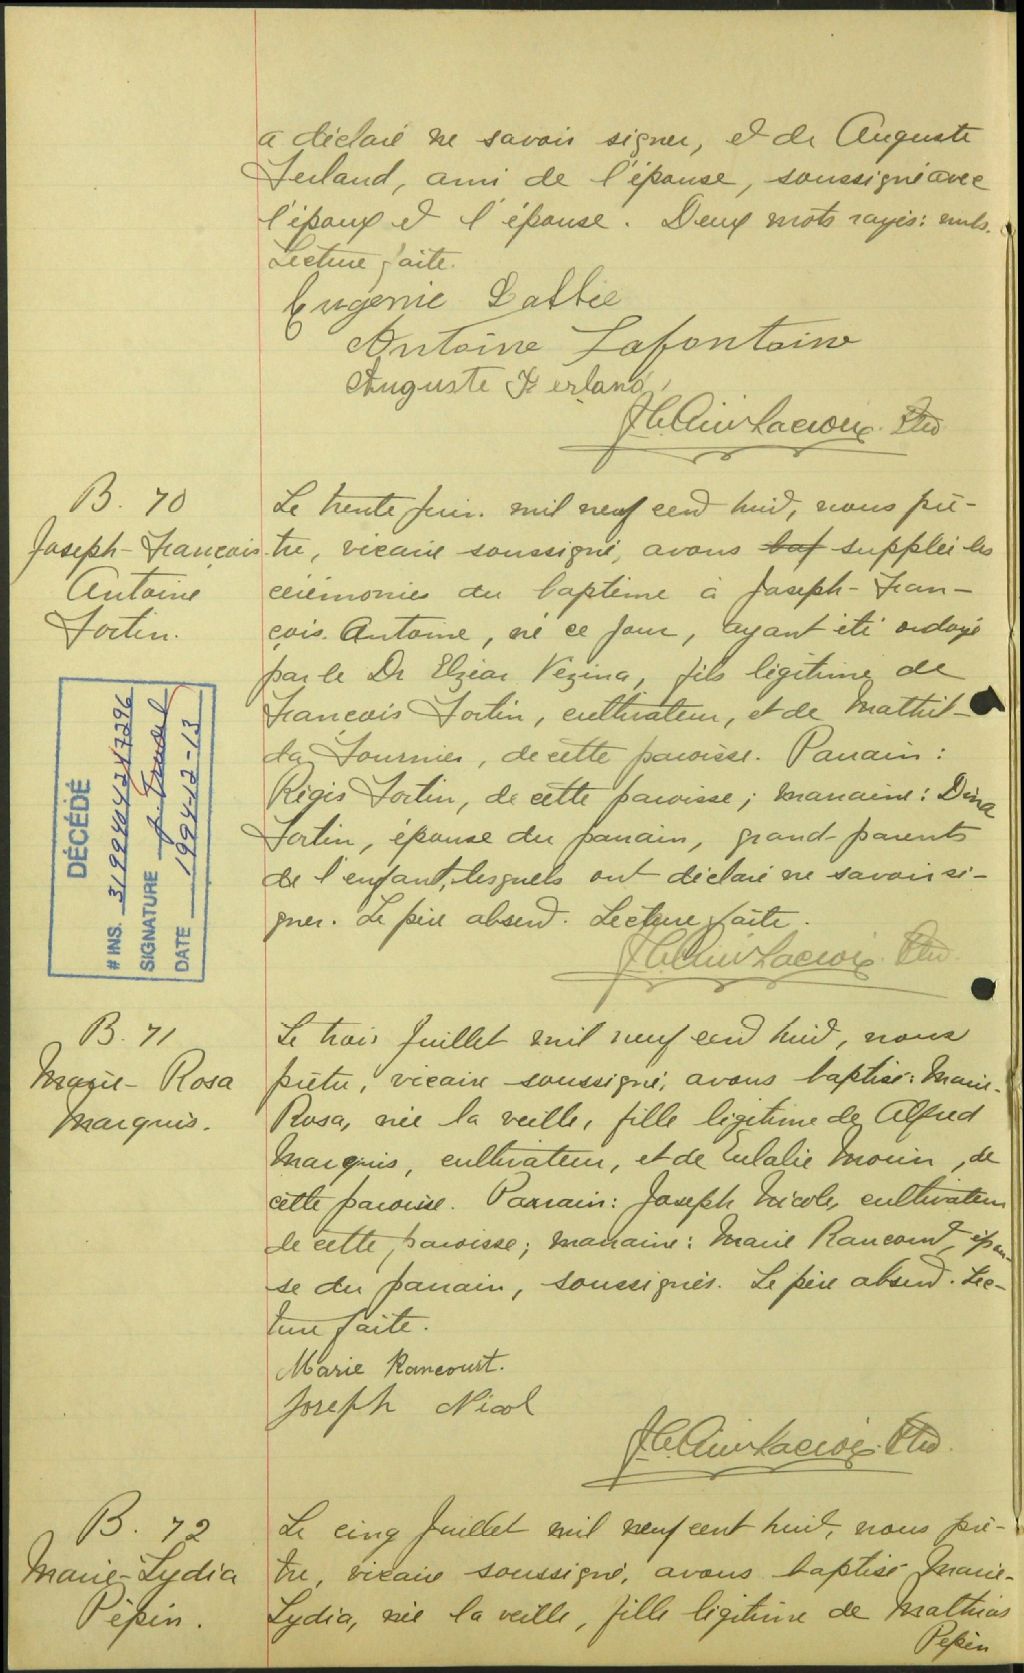 a déclaré ne savoir signer, et de Auguste
Ferland, ami de l'épouse, soussigné avec
l'époux et l'épouse. Deux mots rayés: nuls.
Lecture faite.
Eugenie
Antoine Lafontaine
Auguste Ferland
Lacroix Ptre
B. 70
Joseph-François
Antoine
Fortin.
Le trente Juin mil neuf cent huit, nous prê-
tre, vicaire soussigné, avons bap suppléé les
cérémonies du baptême à Joseph-Fran-
çois Antoine, né ce jour, ayant été ondoyé
par le Dr Elzéar Vézina, fils légitime de
François Fortin, cultivateur, et de Mathil-
da Fournier, de cette paroisse. Parrain:
Régis Fortin, de cette paroisse; marraine: Dina
Fortin, épouse du parrain, grand-parents
de l'enfant, lesquels ont déclaré ne savoir si-
gner. Le père absent. Lecture faite.
Lacroix Ptre.
DÉCÉDÉ
# INS. 3199404247296
SIGNATURE
DATE 1994-12-13
B. 71
Marie-Rosa
Marquis.
Le trois Juillet mil neuf cent huit, nous
prêtre, vicaire soussigné, avons baptisé: Marie-
Rosa, née la veille, fille légitime de Alfred
Marquis, cultivateur, et de Eulalie Morin, de
cette paroisse. Parrain: Joseph Nicole, cultivateur
de cette paroisse; marraine: Marie Rancourt, épou-
se du parrain, soussignés. Le père absent. Lec-
ture faite.
Marie Rancourt.
Joseph Nicol
Lacroix Ptre.
B. 72
Marie-Lydia
Pépin.
Le cinq Juillet mil neuf cent huit, nous prê-
tre, vicaire soussigné, avons baptisé Marie-
Lydia, née la veille, fille légitime de Mathias
Pepin